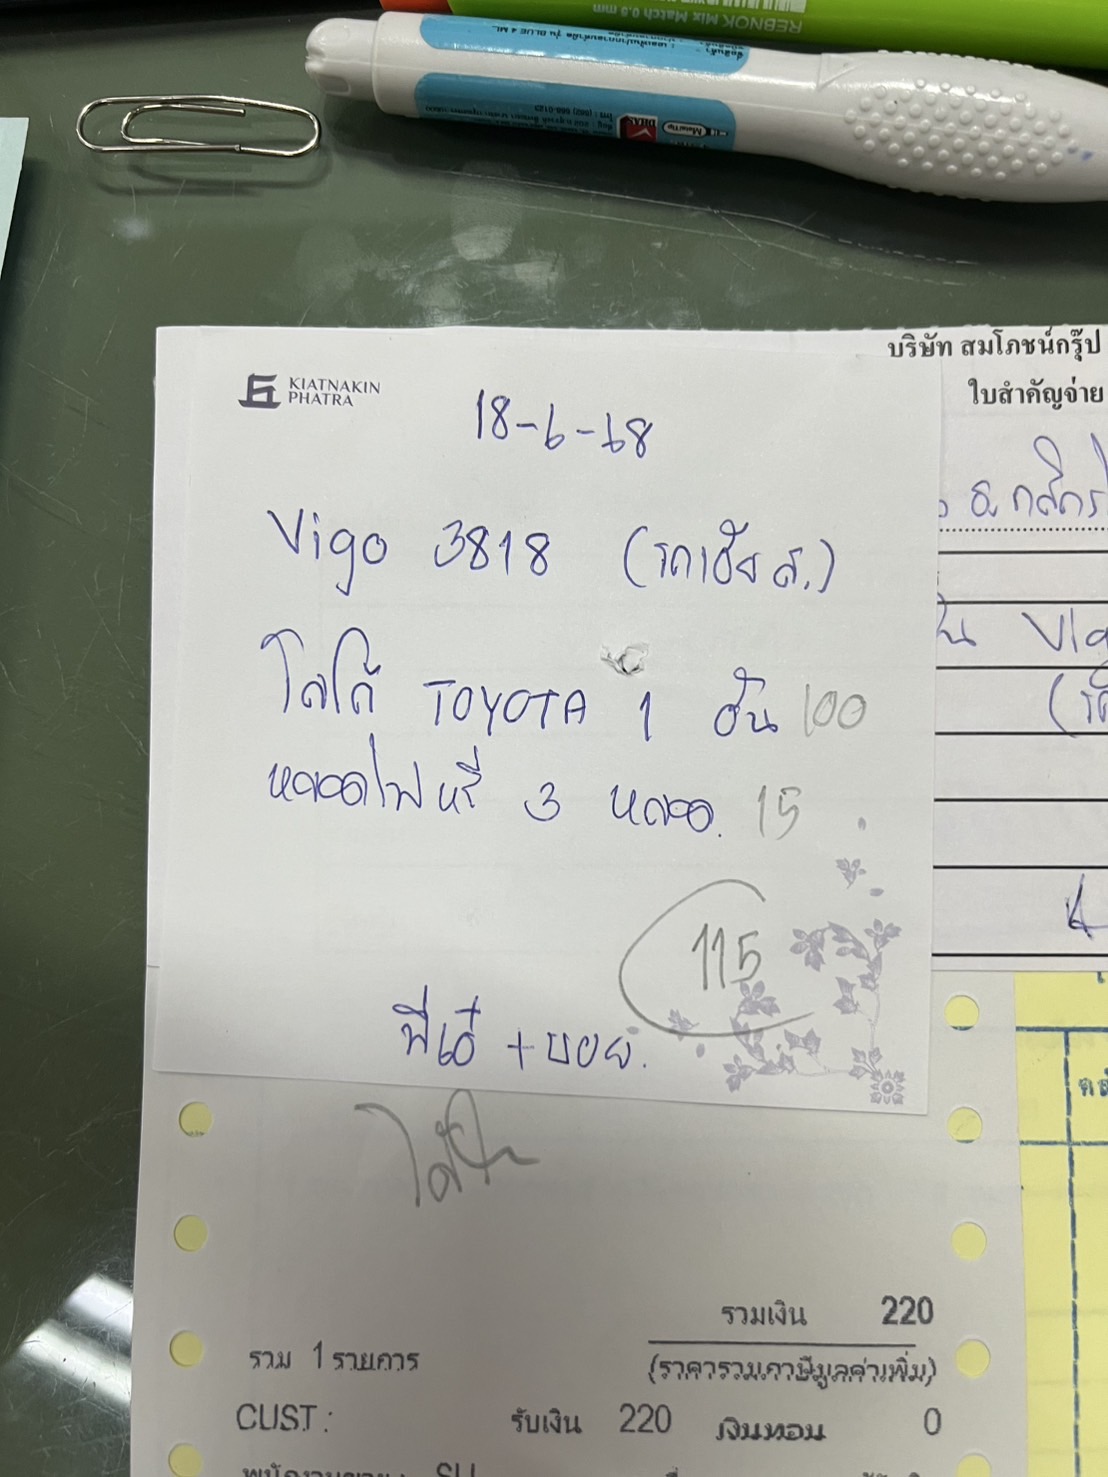 REBNOK Mix Match 0.5 mm
บริษัท สมโภชน์กรุ๊ป
ใบสำคัญจ่าย
KIATNAKIN
PHATRA
18-6-68
Vigo 3818 (รถเฮีย ส.)
โลโก้ TOYOTA 1 อัน 100
หลอดไฟหรี่ 3 หลอด. 15
115
พี่เอ๋ + บอย.
รวมเงิน 220
รวม 1 รายการ
(ราคารวมภาษีมูลค่าเพิ่ม)
CUST :
รับเงิน 220 เงินทอน 0